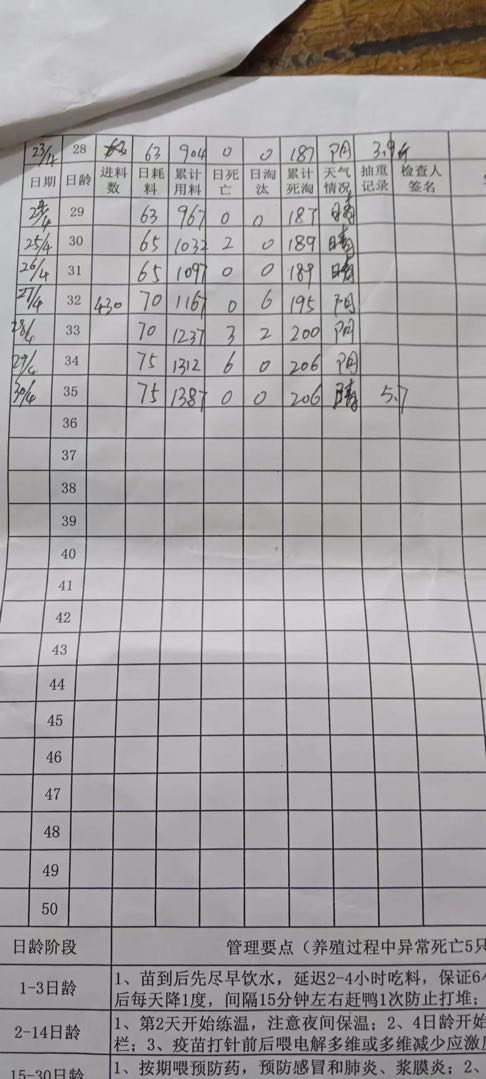 23/4 28 63 904 0 0 187 阴 3.9斤
日期 日龄 进料数 日耗料 累计用料 日死亡 日淘汰 累计死淘 天气情况 抽重记录 检查人签名
24/4 29 63 967 0 0 187 晴
25/4 30 65 1032 2 0 189 晴
26/4 31 65 1097 0 0 189 晴
27/4 32 430 70 1167 0 6 195 阴
28/4 33 70 1237 3 2 200 阴
29/4 34 75 1312 6 0 206 阴
30/4 35 75 1387 0 0 206 晴 5.7
36
37
38
39
40
41
42
43
44
45
46
47
48
49
50
日龄阶段 管理要点（养殖过程中异常死亡5只
1-3日龄 1、苗到后先尽早饮水，延迟2-4小时吃料，保证6
后每天降1度，间隔15分钟左右赶鸭1次防止打堆；
2-14日龄 1、第2天开始练温，注意夜间保温；2、4日龄开始
栏；3、疫苗打针前后喂电解多维或多维减少应激
15-30日龄 1、按期喂预防药，预防感冒和肺炎、浆膜炎；2、